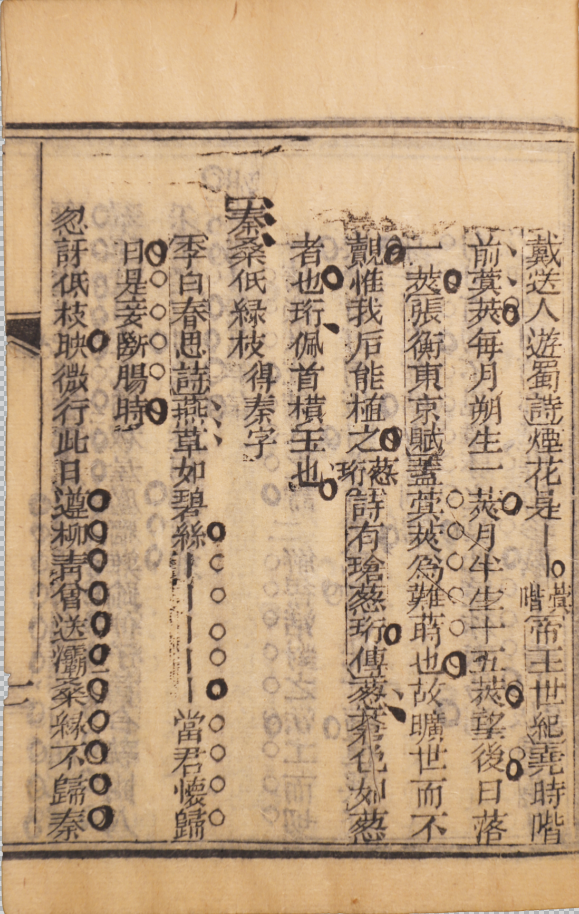 戴送人遊蜀詩煙花是｜蓂階帝王世紀堯時階
前蓂莢每月朔生一莢月半生十五莢望後日落
一莢張衡東京賦蓋蓂莢為難蒔也故曠世而不
覿惟我后能植之葱珩詩有瑲葱珩傳葱蒼色如葱
者也珩佩首橫玉也
秦桑低綠枝 得秦字
李白春思詩燕草如碧絲｜｜｜｜｜當君懷歸
日是妾斷腸時
忽訝低枝映微行此日遵柳靑曾送灞桑綠不歸秦
二